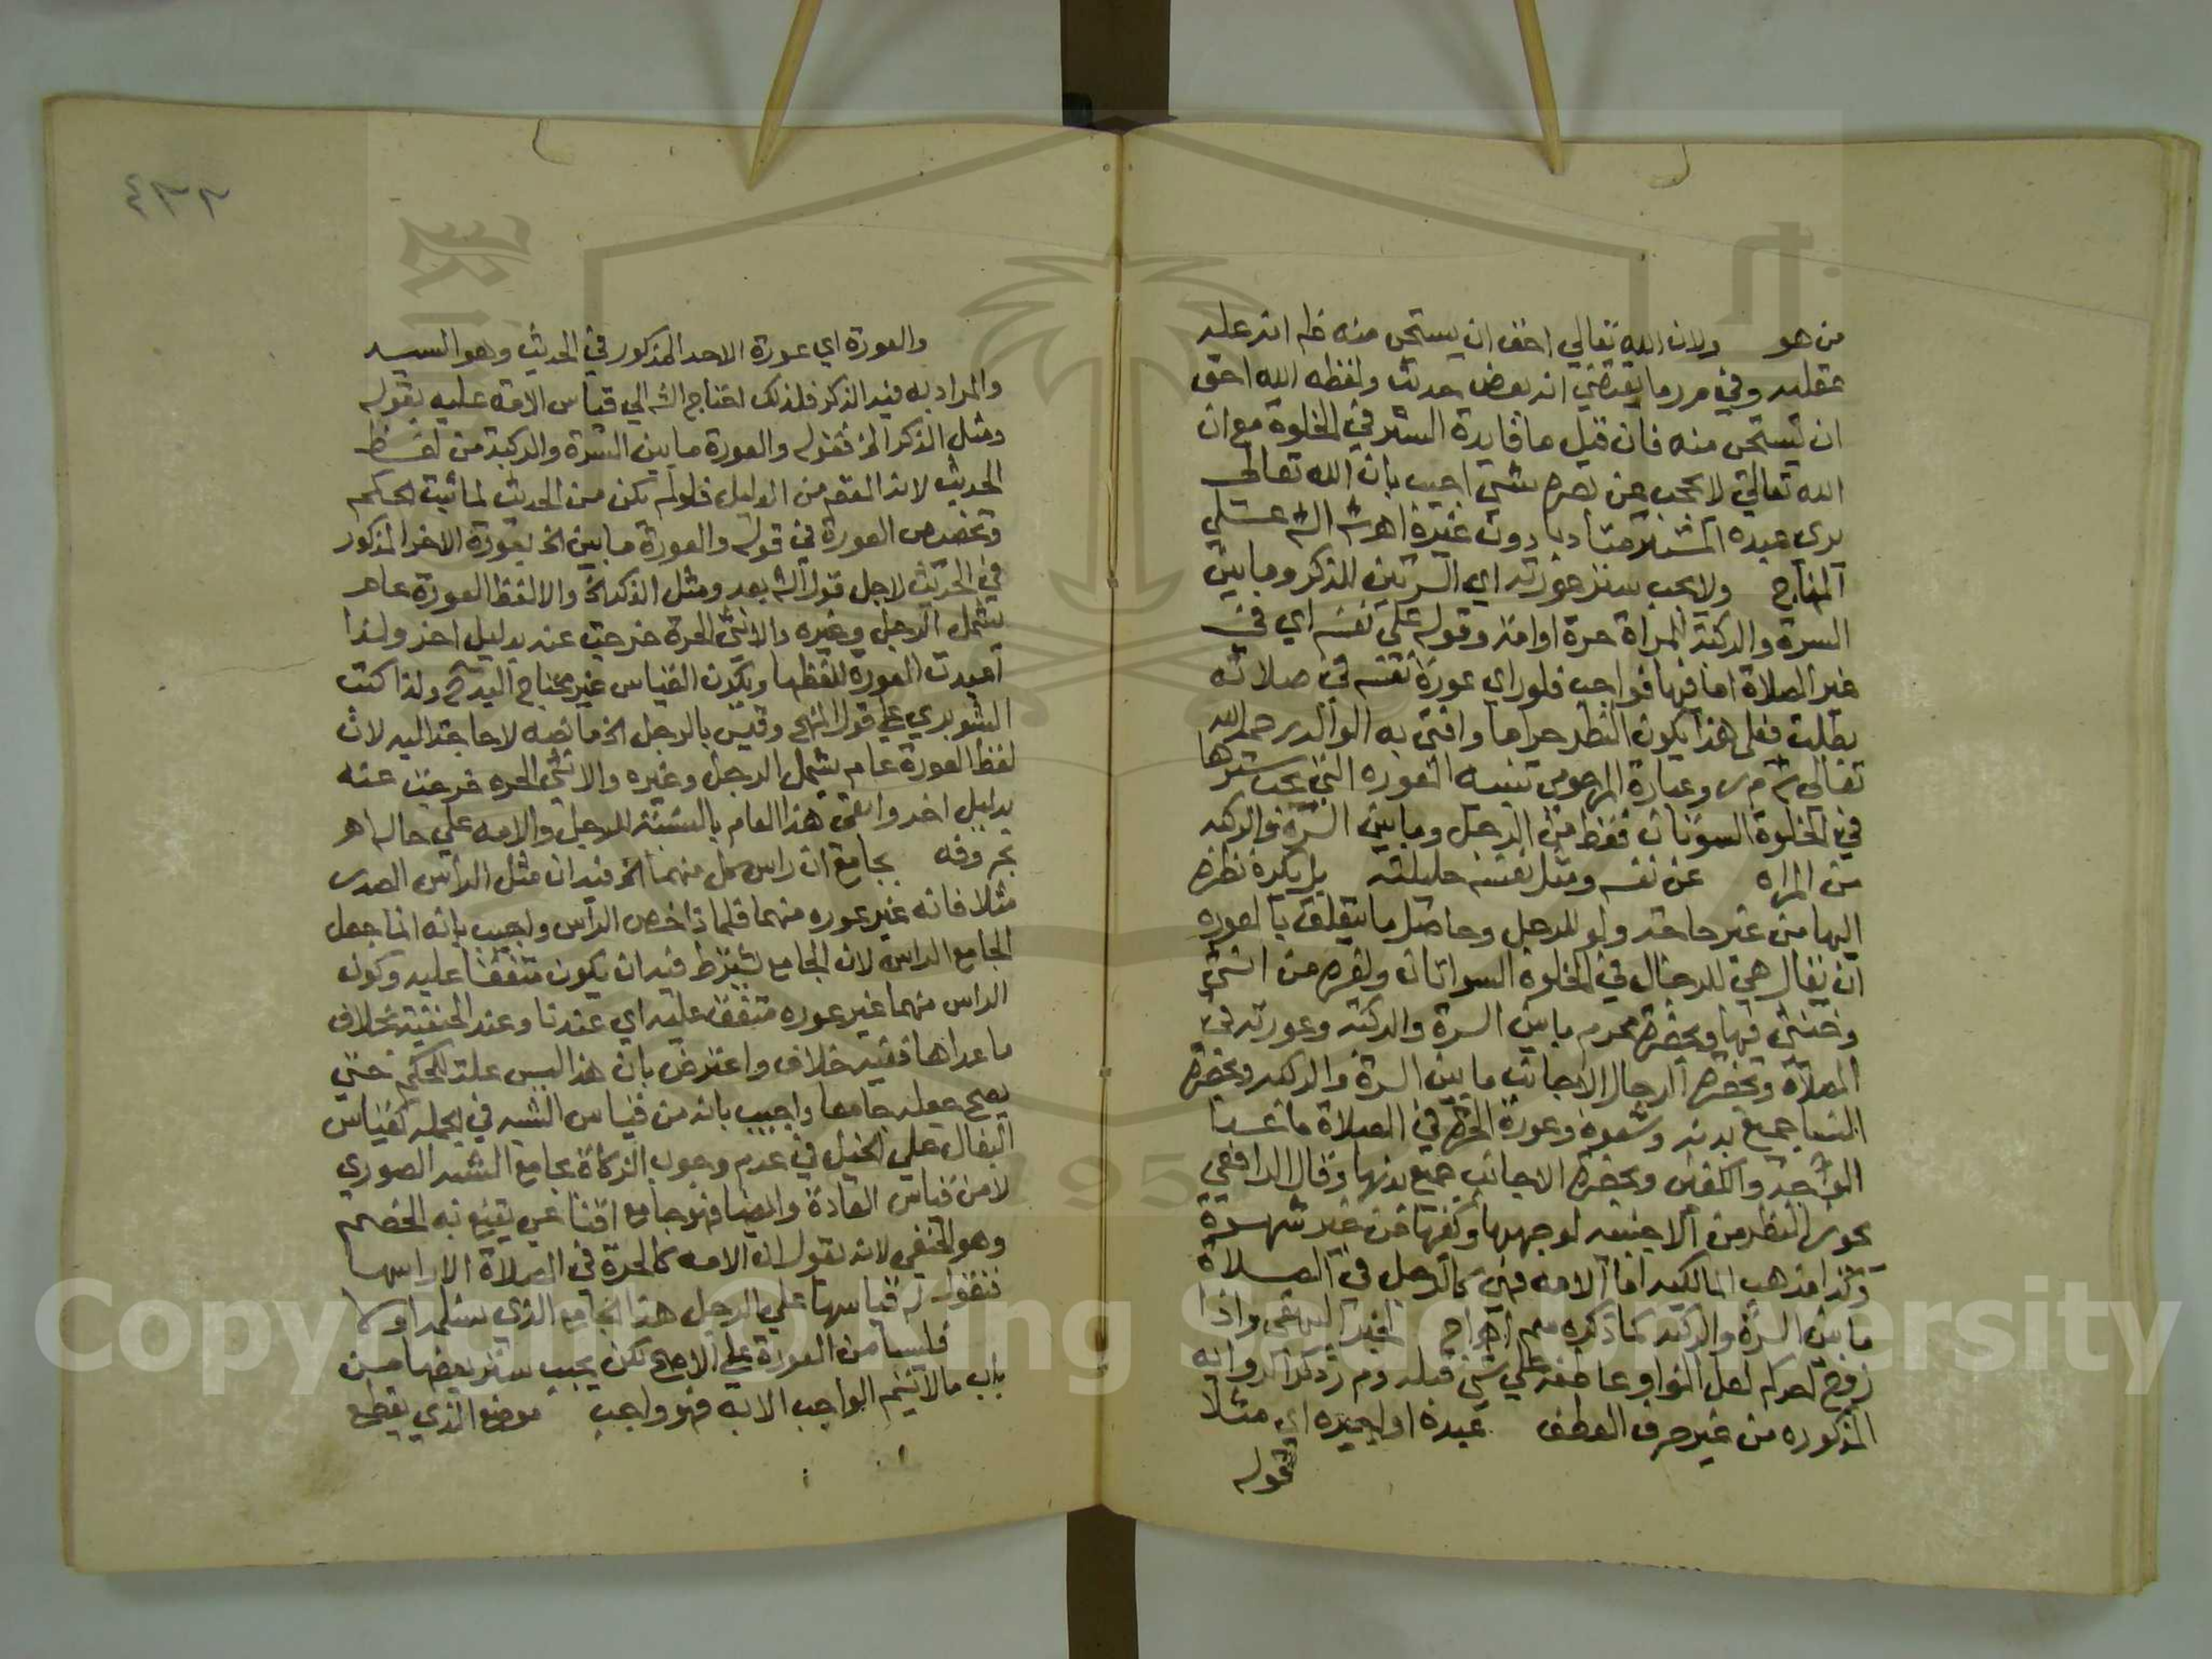 من هو ولان الله تعالي احق ان يستحي منه
وفي م ر ما يقتضي انه بعض حديث ولفظه الله احق
ان يستحي منه فان قيل ما فايدة الستر في الخلوة مع ان
الله تعالي لا يحجب عن بصره شي اجيب بان الله تعالي
يري عبده المستتر متادبا دون غيره اهـ
ولا يجب ستر عورته اي السوءتين للذكر وما بين
السرة والركبة المراة حرة او امة وقوله علي نفسه اي في
غير الصلاة اما فيها فواجب فلو راي عورة نفسه في صلاته
بطلت فعلي هذا يكون النظر حراما وافتي به الوالد رحمه الله
تعالي وعبارة المرحومي تنبيه العوره التي يجب سترها
في الخلوة السوءتان فقط من الرجل وما بين السرة والركبه
من المراه عن نفسه ومثل نفسه حليلته بل يكره نظره
اليها من غير حاجة ولو للرجل وحاصل ما يتعلق بالعوره
ان يقال هي للرجال في الخلوة السواتان ولغيره من انثي
وخنثي فيها وبحضرة محرم ما بين السرة والركبه وعورته في
الصلاة وبحضرة الرجال الاجانب ما بين السرة والركبه وبحضرة
النسا جميع بدنه وشعوره وعورة الحرة في الصلاة ما عدا
الوجه والكفين وبحضرة الاجانب جميع بدنها وقال الرافعي
يجوز النظر من الاجنبيه لوجهها وكفيها من غير شهوة
وكذا مذهب المالكيه اما الامه فهي كالرجل في الصلاة
ما بين السرة والركبه كما ذكره لخبر البيهقي واذا
زوج لعل الواو عاطفه علي شي قبله
المذكوره من غير حرف العطف عبده او اجيره اي مثلا
قوله
٤٣٣
والعورة اي عورة الاحد المذكور في الحديث وهو السيد
والمراد به فيه الذكر فلذلك احتاج الش الي قياس الامة عليه بقوله
ومثل الذكر الخ فقوله والعورة ما بين السرة والركبة من لفظ
الحديث لانه المقصود من الدليل فلو لم تكن من الحديث لما ثبت الحكم
وتخصيص العورة في قوله والعورة ما بين الخ بعورة الاحد المذكور
في الحديث لاجل قول الش بعد ومثل الذكر الخ والا لفظ العورة عام
يشمل الرجل وغيره والانثي الحرة خرجت عنه بدليل اخر ولذا
اعيدت العورة بلفظها ويكون القياس غير محتاج اليه ح ولذا كتب
الشوبري علي قول المنهج وقيس بالرجل الخ ما نصه لا حاجة اليه لان
لفظ العورة عام يشمل الرجل وغيره والانثي الحره خرجت عنه
بدليل اخر وابقي هذا العام بالنسبة للرجل والامه علي حاله اهـ
بحروفه بجامع ان راس كل منهما الخ فيه ان مثل الراس الصدر
مثلا فانه غير عوره منهما فلماذا خص الراس واجيب بانه انما جعل
الجامع الراس لان الجامع يشترط فيه ان يكون متفقا عليه وكون
الراس منهما غير عوره متفق عليه اي عندنا وعند الحنفية بخلاف
ما عداها ففيه خلاف واعترض بان هذا ليس علة للحكم حتي
يصح جعله جامعا واجيب بانه من قياس الشبه في الجمله كقياس
البغال علي الخيل في عدم وجوب الزكاة بجامع الشبه الصوري
لا من قياس العادة وايضا فهو جامع اقناعي يقنع به الخصم
وهو الحنفي لانه يقول ان الامه كالحرة في الصلاة الا راسها
فنقول له قياسها علي الرجل هذا الجامع الذي سلمه اولا
فليسا من العورة علي الاصح لكن يجب ستر بعضهما من
باب ما لا يتم الواجب الا به فهو واجب موضع الذي يقطع
Copyright © King Saud University
1957